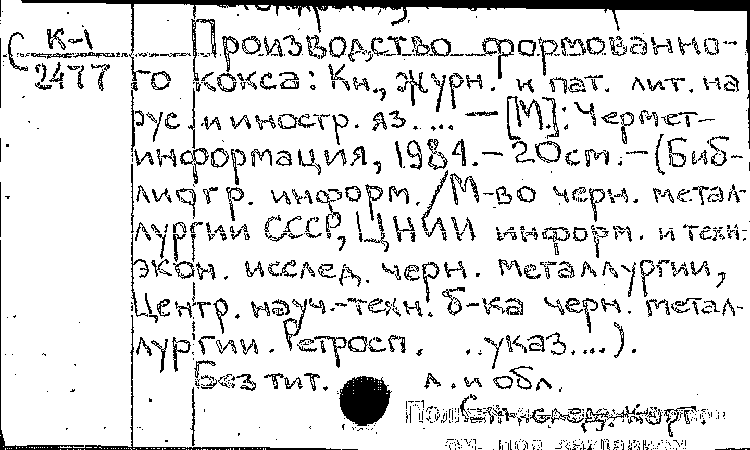 К-1
2477
Производство формованно-
го кокса: Кн., журн. и пат. лит. на
рус. и иностр. яз. ... — [М.]: Чермет-
информация, 1984. – 20 см. – (Биб-
лиогр. информ. / М-во черн. метал-
лургии СССР, ЦНИИ информ. и техн.-
экон. исслед. черн. металлургии,
Центр. науч.-техн. б-ка черн. метал-
лургии. Ретросп. ..указ....).
Без тит. л. и обл.
см. под заглавием